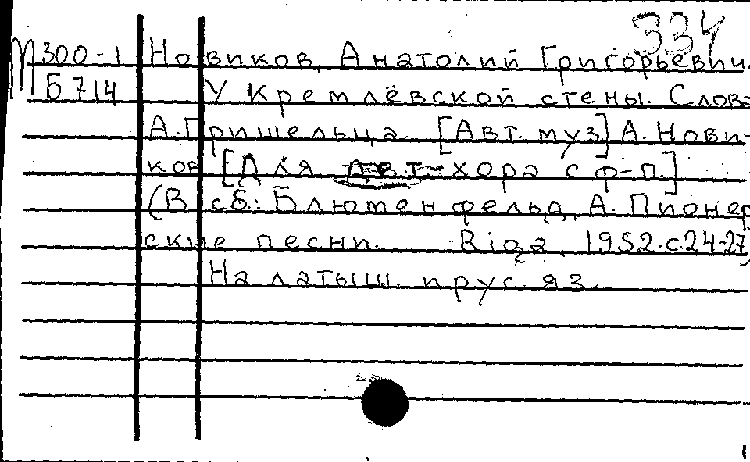 334
М 300-1 Новиков, Анатолий Григорьевич.
Б 714 У Кремлёвской стены. Слова
А. Пришельца. [Авт. муз] А. Нови-
ков [Для дет. хора с ф-п.]
(В сб.: Блюменфельд, А. Пионер
ские песни. Riga, 1952. с. 24-27)
На латыш. и рус. яз.